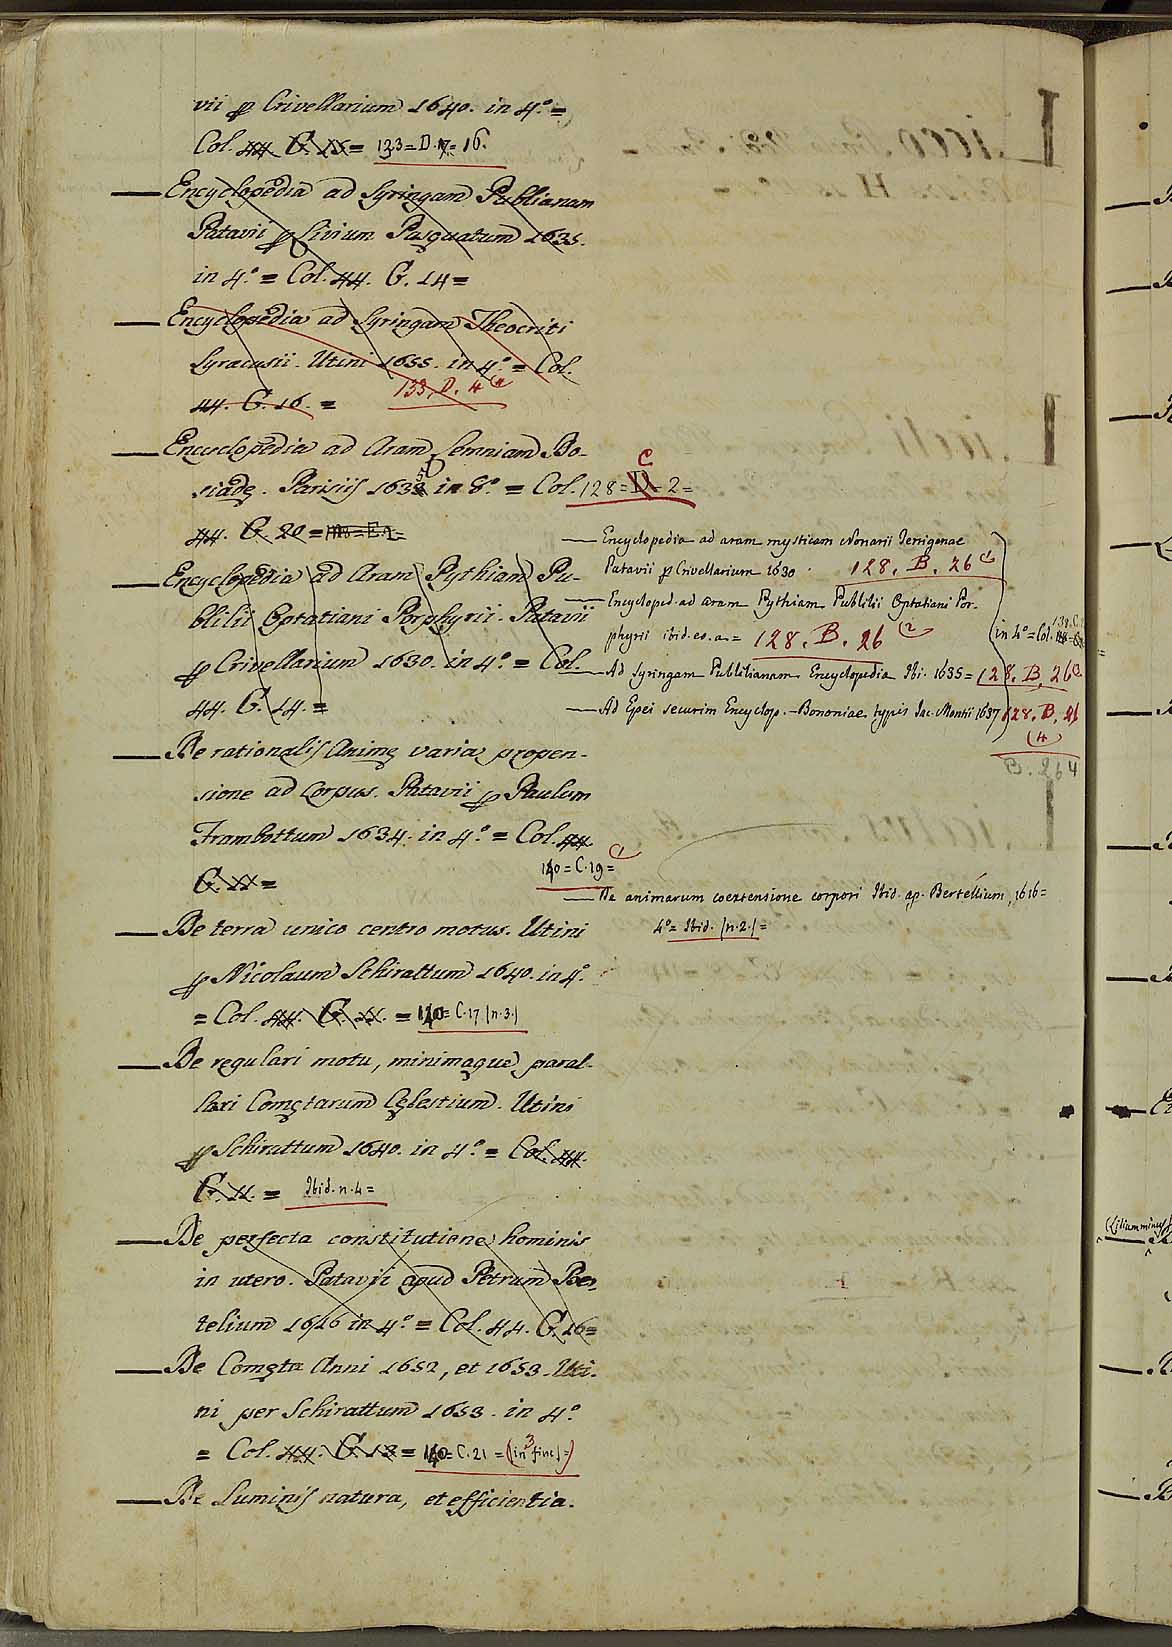 vii p Crivellarium 1640. in 4.º =
Col. 44 G. 11 = 133 = D. 17 = 16.
— Encyclopędia ad Syringam Publianam
Patavii p Livium Pasquatum 1635.
in 4.º = Col. 44. G. 14 =
— Encyclopędia ad Syringam Theocriti
Syracusii. Utini 1655. in 4.º = Col.
44. G. 16. = 133. D. 4
— Encyclopędia ad Aram Lemniam Do-
siadę. Parisiis 1635 in 8.º = Col. 128 = D C 2 =
44. G. 20 =
— Encyclopędia ad Aram Pythiam Pu-
blilii Optatiani Porphyrii. Patavii
p Crivellarium 1630. in 4.º = Col.
44. G. 14. =
— De rationalis Animę varia propen-
sione ad Corpus. Patavii p Paulum
Frambottum 1634. in 4.º = Col. 44
G. 11 = 140 = C. 19 =
— De terra unico centro motus. Utini
p Nicolaum Schirattum 1640. in 4.º
= Col. 44. G. 11. = 140 = C. 17 (n. 3.)
— De regulari motu, minimaque paral-
laxi Comętarum Cęlestium. Utini
p Schirattum 1640. in 4.º = Col. 44.
G. 11. = Ibid. n. 4 =
— De perfecta constitutione hominis
in utero. Patavii apud Petrum Ber-
telium 1616 in 4.º = Col. 44. G. 16 =
— De Comęta Anni 1652, et 1653. Uti-
ni per Schirattum 1653. in 4.º
= Col. 44. G. 13 = 140 = C. 21 = (in fine) = 3
— De Luminis natura, et efficientia.
— Encyclopedia ad aram mysticam Nonarii Terrigenae
Patavii p Crivellarium 1630. 128. B. 26 (1
— Encycloped. ad aram Pythiam Publilii Optatiani Por-
phyrii ibid. eo. a. = 128. B. 26 (2
in 4º = Col.
— Ad Syringam Publilianam Encyclopedia Ibi. 1635 = 128. B. 26 (3
— Ad Epei securim Encyclop. - Bononiae typis Jac. Montii 1637 128. B. 26
(4)
B. 264
— De animarum coextensione corpori Ibid. ap. Bertellium, 1616 =
4º = Ibid. (n. 2.) =
(Lilium minus)